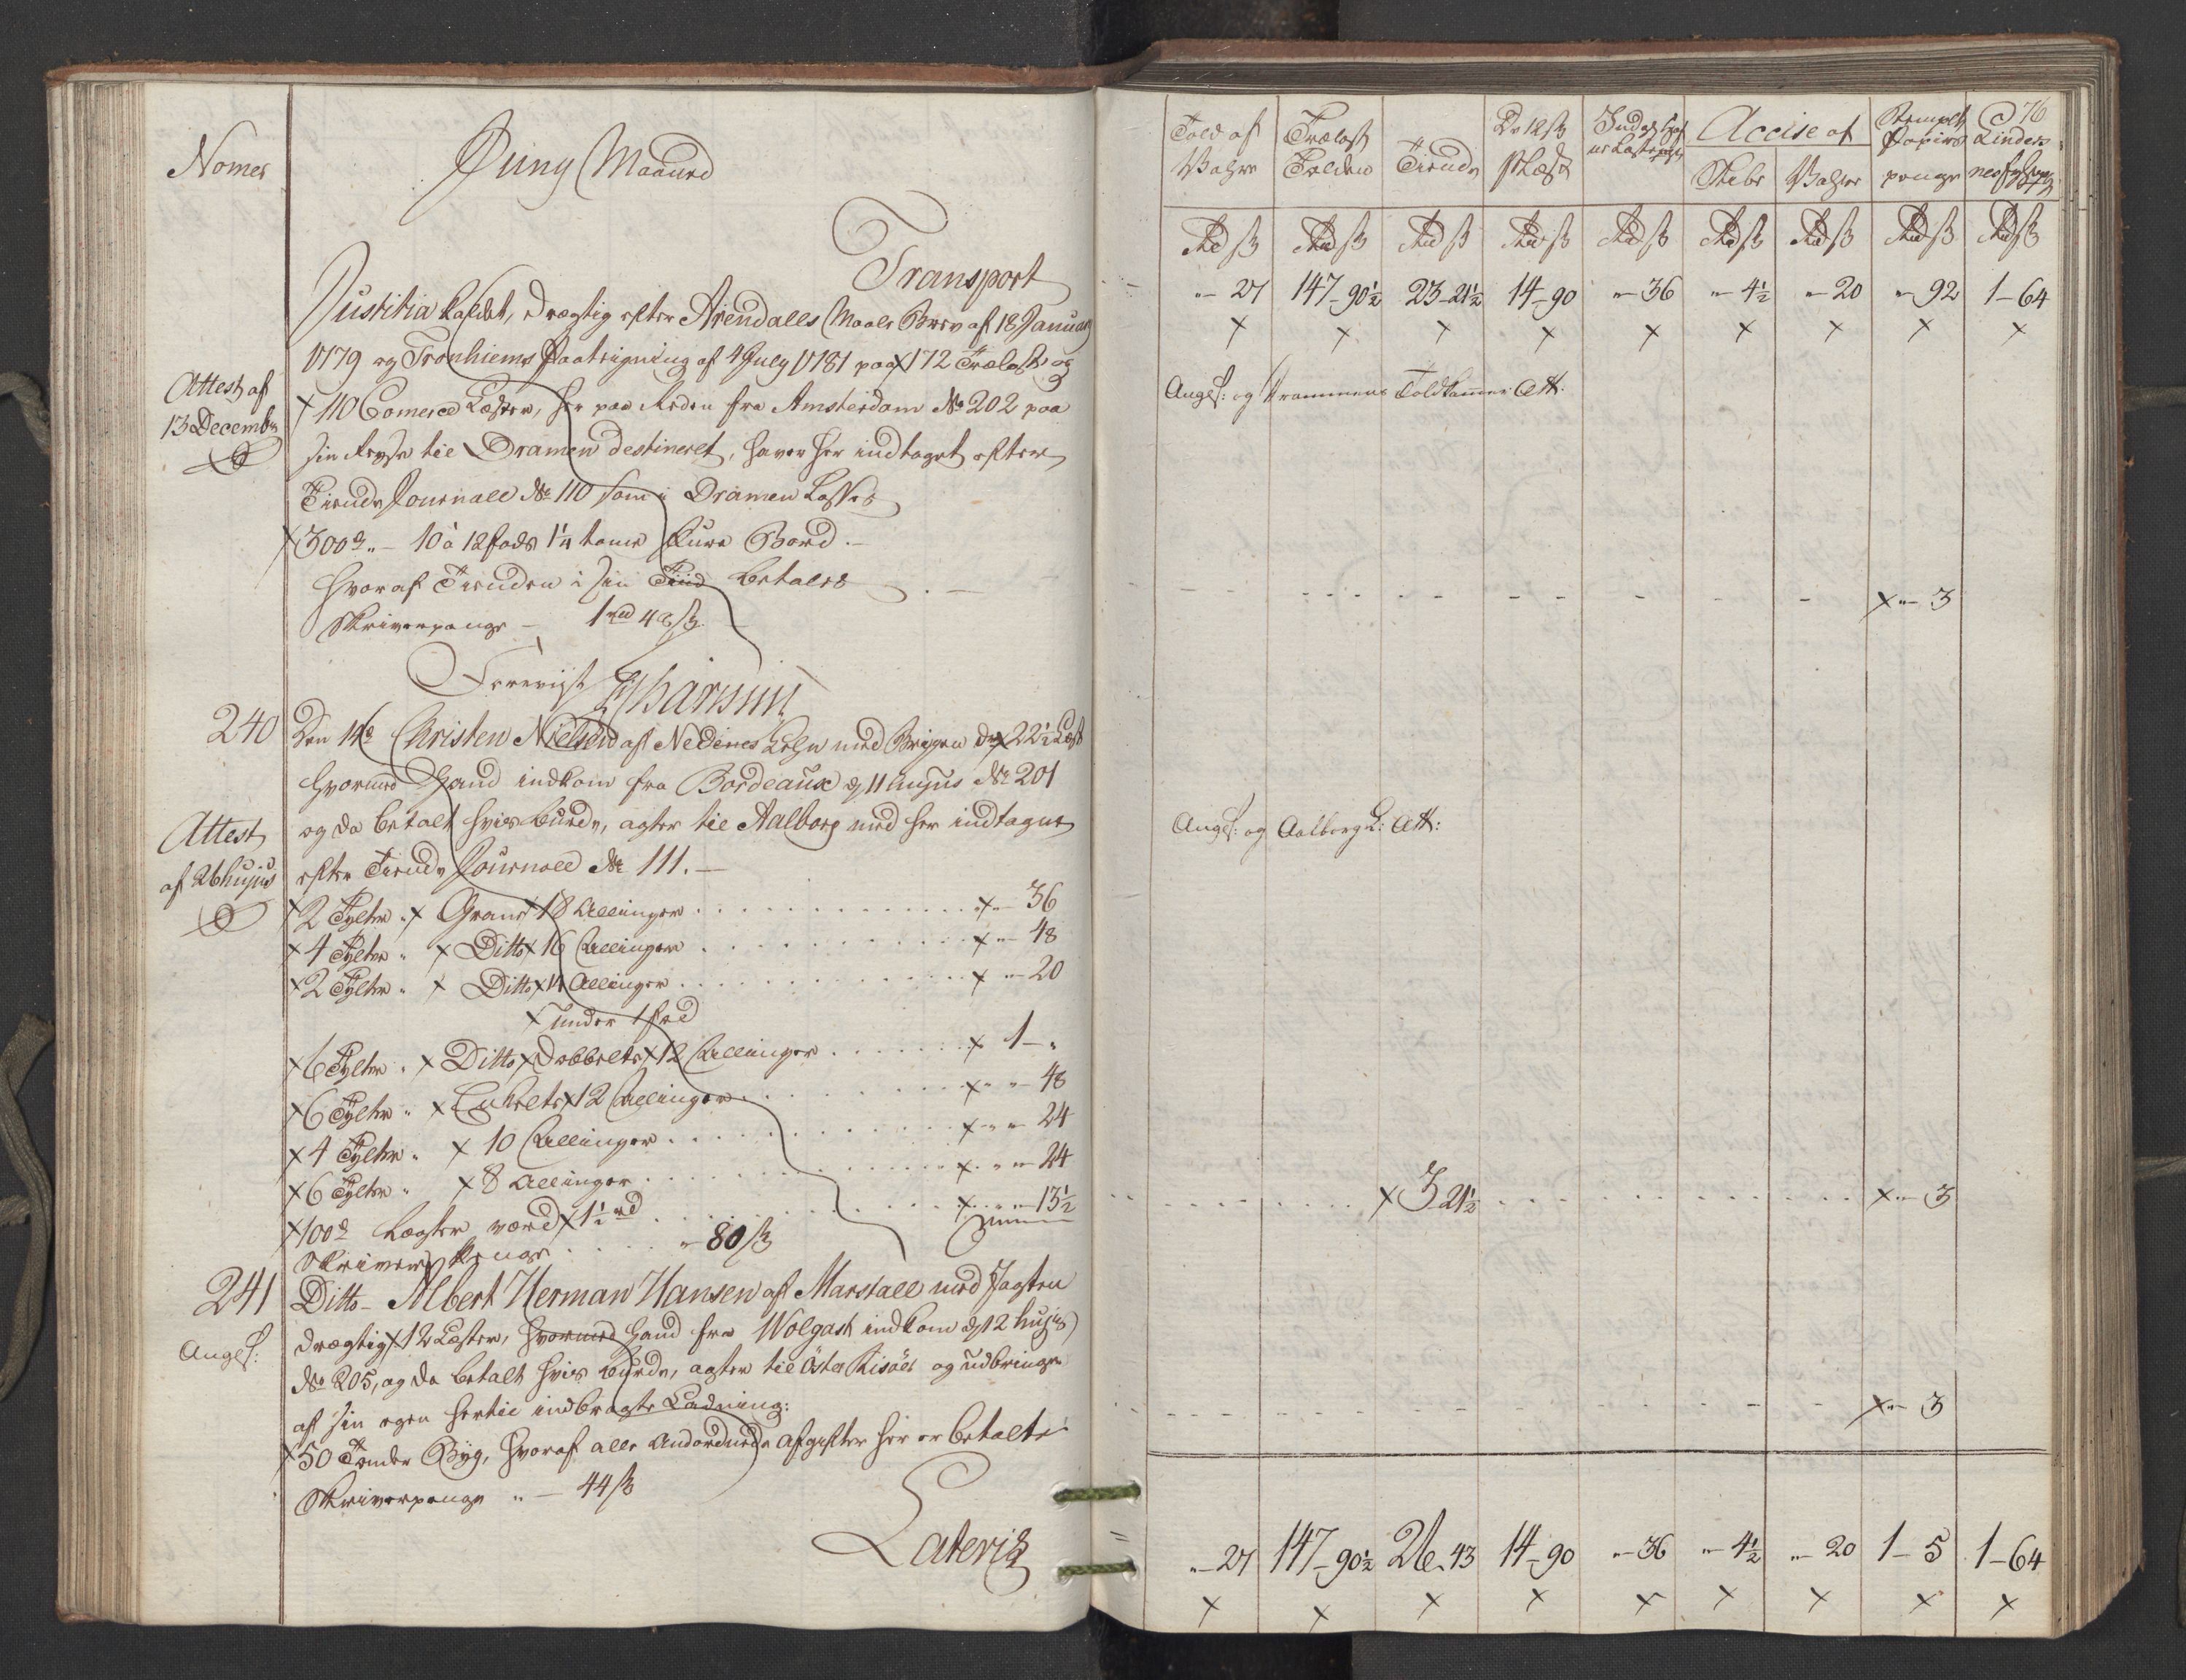 Nomer
Juny Maaned
Transport
Justitia kaldet, drægtig efter Arendalls Maale Brev af 18 Januarij
1779 og Tronhiems Paategning af 4 July 1781 paa 172 Trælast og
110 Comerce Læster, her paa Reden fra Amsterdam No 202 paa
sin Reyse til Dramen destineret, haver her indtaget efter
Tiende Journall No 110 som i Dramen Losses
300 10 à 12 fods 1 1/4 tome fure Bord.
hvoraf Tienden i sin Tiid betales
Skriverpenge - 1 rd 48 ß
Attest af
13 Decembr
Foreviist
240
Den 14de Christen Nielsen af Nedenes Lehn med Brigen dr. 22 1/2 Læst
hvormed Hand indkom fra Bordeaux d. 11 hujus No 201
og da betalt hvis burde, agter til Aalborg med her indtagne
efter Tiende Journall No 111.
Attest
af 26 hujus
2 Tylter Grane 18 Allinger 36
4 Tylter Ditto 16 Allinger 48
2 Tylter Ditto 14 Allinger 20
under 1 fod
6 Tylter Ditto Dobbelte 12 Allinger 1 -
6 Tylter Enkelte 12 Allinger 48
4 Tylter 10 Allinger 24
6 Tylter 8 Allinger 24
100 Lægter værd 1 1/2 rd 13 1/2
Skriver Penge 80 ß
241
Ditto - Albert Herman Hansen af Marstall med Jagten
drægtig 12 Læster, hvormed Hand fra Wolgast indkom d. 12 hujus
No 205, og da betalt hvis burde, agter til Öster Riisöer og udbringer
af sin egen hertil indbragte Ladning:
50 Tønder Byg, hvoraf alle Anordnede afgifter her er betalte
Skriverpenge - 44 ß
Angl:
Lateris
76
Told af Vahre | Trælast Tolden | Tiende | De 12 ß pr Læst | Accise af Vahre | Stemplt Papiirs penge | Lindesnes fyhr
Rd ß | Rd ß | Rd ß | Rd ß | Rd ß | Rd ß | Rd ß | Rd ß | Rd ß
- 27 | 147 - 90 1/2 | 23 - 21 1/2 | 14 - 90 | - 36 | - 4 1/2 | - 20 | - 92 | 1 - 64
Angl: og Drammens Toldkammer Att:
- 3
Angl: og Aalborg T: Att:
3 - 21 1/2 - 3
- 3
- 27 | 147 - 90 1/2 | 26 - 43 | 14 - 90 | - 36 | - 4 1/2 | - 20 | 1 - 5 | 1 - 64